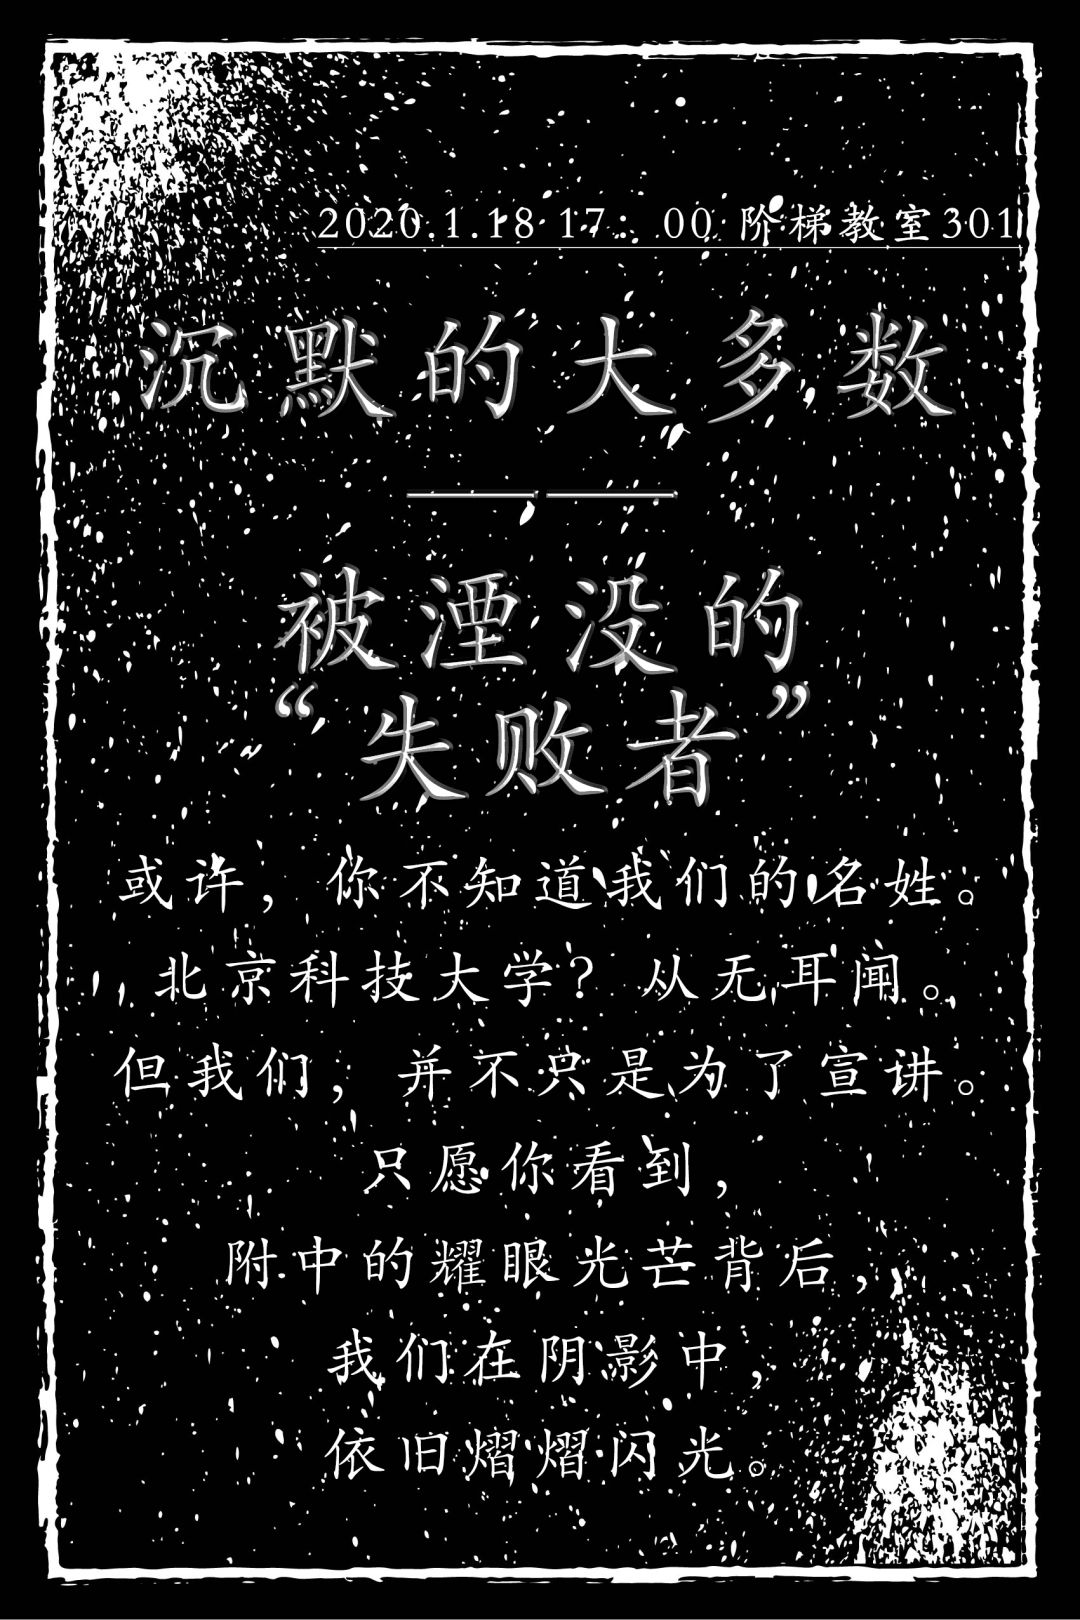 2020.1.18 17：00 阶梯教室301
沉默的大多数
——
被湮没的
“失败者”
或许，你不知道我们的名姓。
北京科技大学？从无耳闻。
但我们，并不只是为了宣讲。
只愿你看到，
附中的耀眼光芒背后，
我们在阴影中，
依旧熠熠闪光。